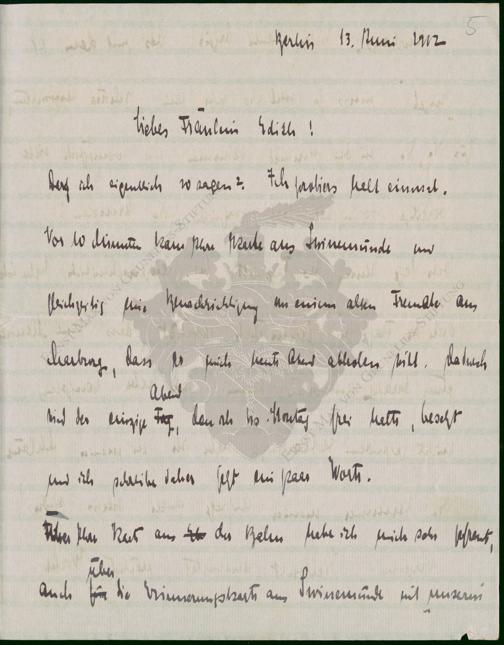 5
Berlin 13. Juni 1912
Liebes Fräulein Edith!
Darf ich eigentlich so sagen? Ich probiers halt einmal.
Vor 10 Minuten kam Ihre Karte aus Swinemünde und
gleichzeitig eine Benachrichtigung von einem alten Freunde aus
Marburg, dass er mich heute Abend abholen will. Dadurch
Abend
wird der einzige Tag, den ich bis Montag frei hatte, besetzt
und ich schreibe daher jetzt ein paar Worte.
Ihre Karte aus der Bahn habe ich mich sehr gefreut,
über
auch für die Erinnerungskarte aus Swinemünde mit unserem